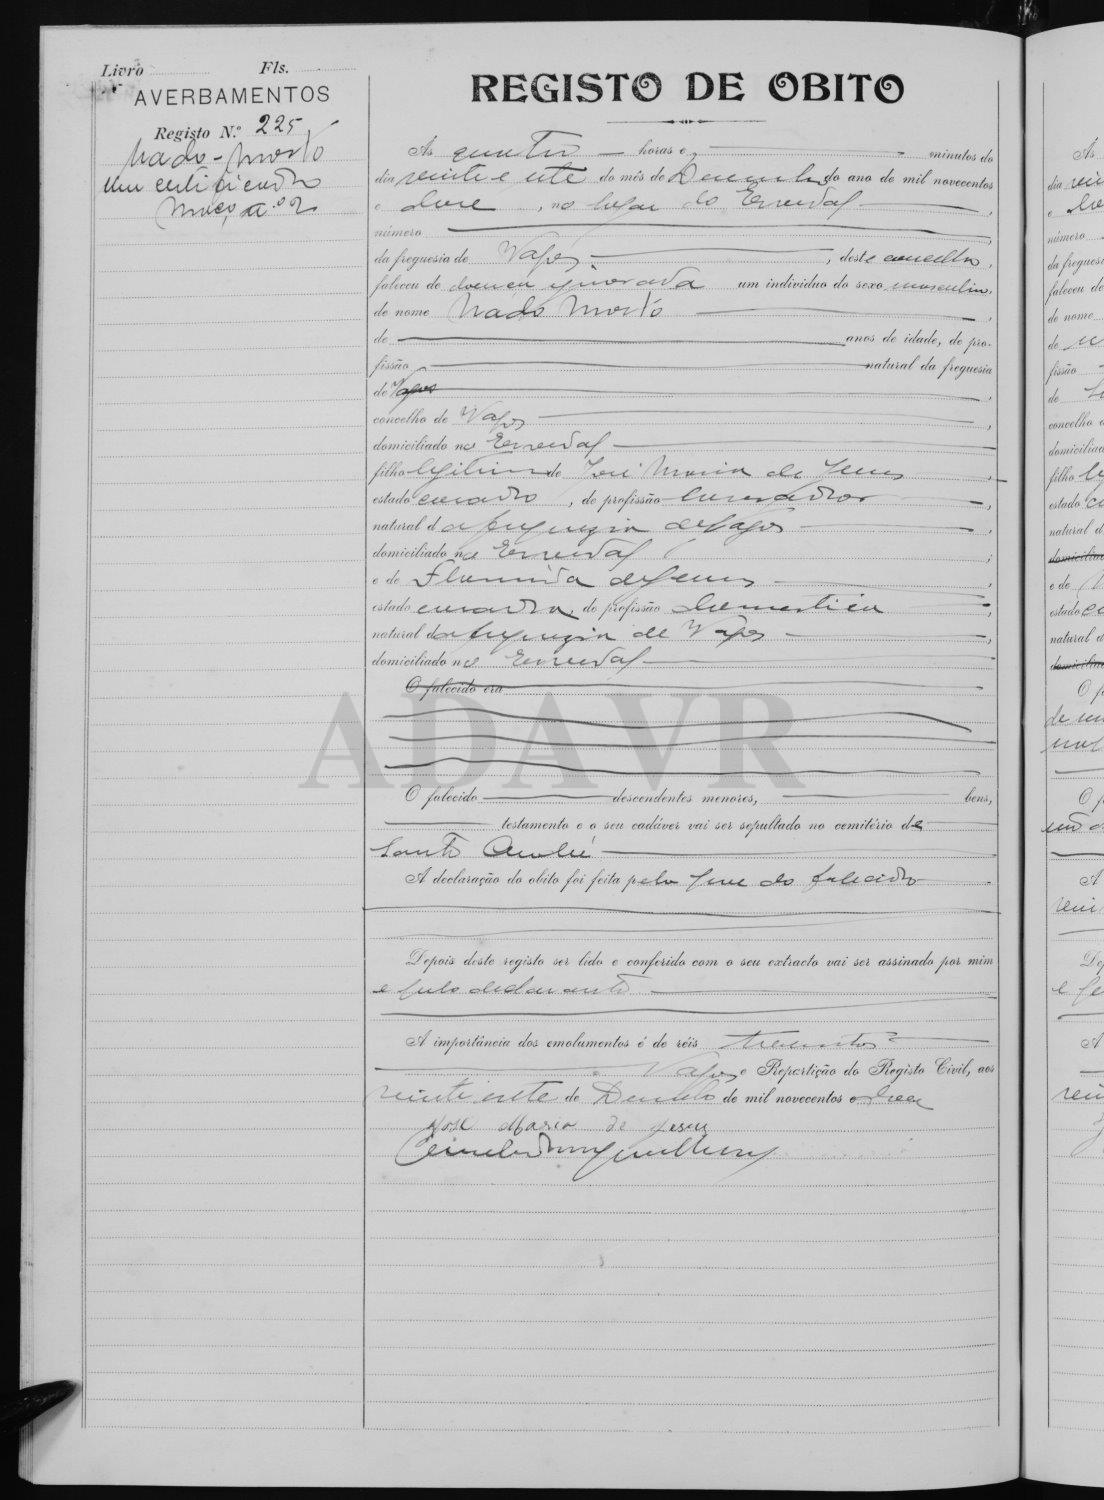 Livro Fls.
AVERBAMENTOS
Registo N.º 225
Nado-Morto
um certificado
maço n.º 2
REGISTO DE OBITO
Ás quatro horas e minutos do
dia vinte e sete do mês de Dezembro do ano de mil novecentos
e doze, no lugar do Ervedal,
número
da freguesia de Vagos, deste concelho,
faleceu de doença ignorada um individuo do sexo masculino,
de nome Nado Morto,
de anos de idade, de pro-
fissão natural da freguesia
de Vagos,
concelho de Vagos,
domiciliado no Ervedal
filho legitimo de José Maria de Jesus,
estado casado, de profissão lavrador,
natural da freguezia de Vagos,
domiciliado no Ervedal;
e de Florinda de Jesus,
estado casada, de profissão domestica,
natural da freguezia de Vagos,
domiciliado no Ervedal
O falecido era
ADAVR
O falecido descendentes menores, bens,
testamento e o seu cadáver vai ser sepultado no cemitério de
Santo André
A declaração do obito foi feita pelo pae do falecido
Depois deste registo ser lido e conferido com o seu extracto vai ser assinado por mim
e pelo declarante
A importância dos emolumentos é de réis trezentos
Vagos e Repartição do Registo Civil, aos
vinte sete de Dezembro de mil novecentos e doze
José Maria de Jesus